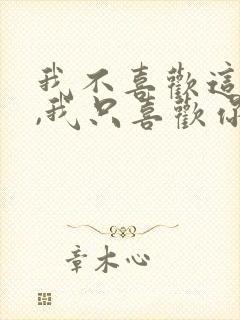 我不喜歡這
,我只喜歡你
章木心